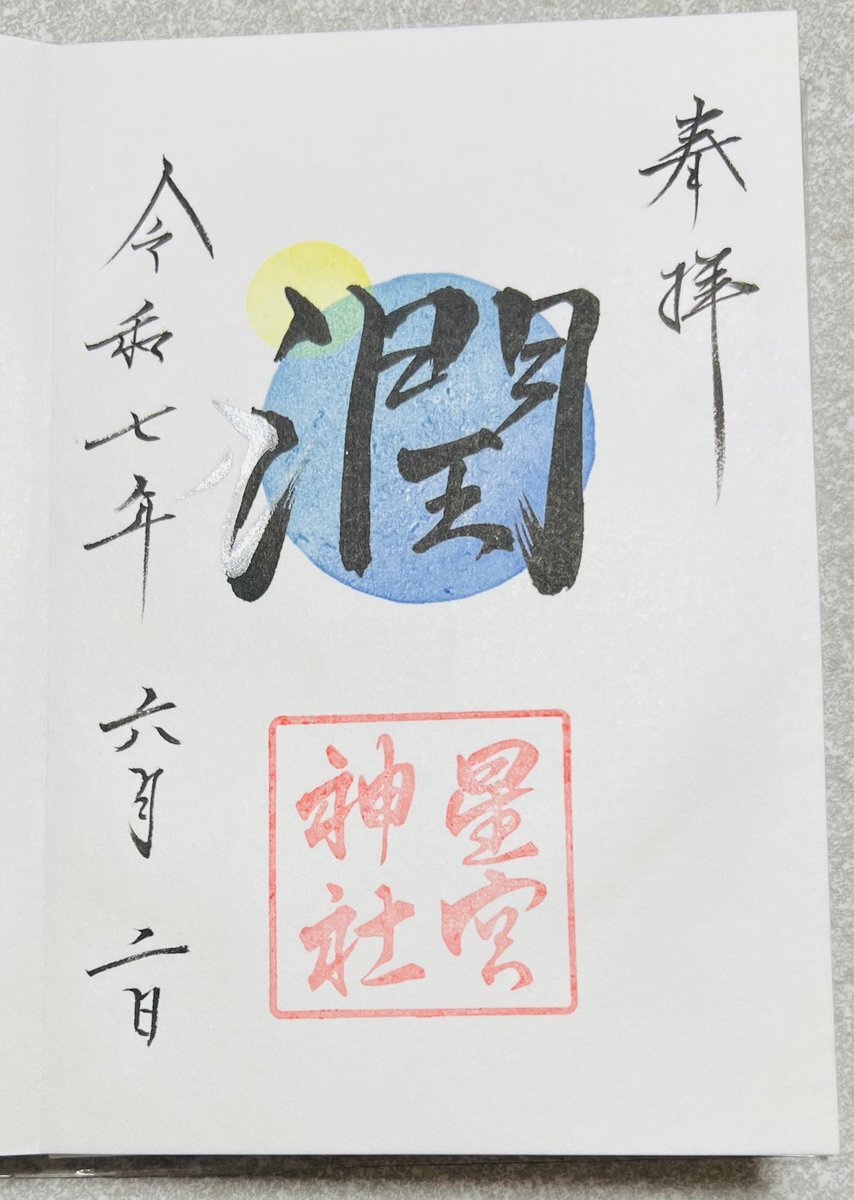 奉拝
潤
星宮
神社
令和七年六月二日